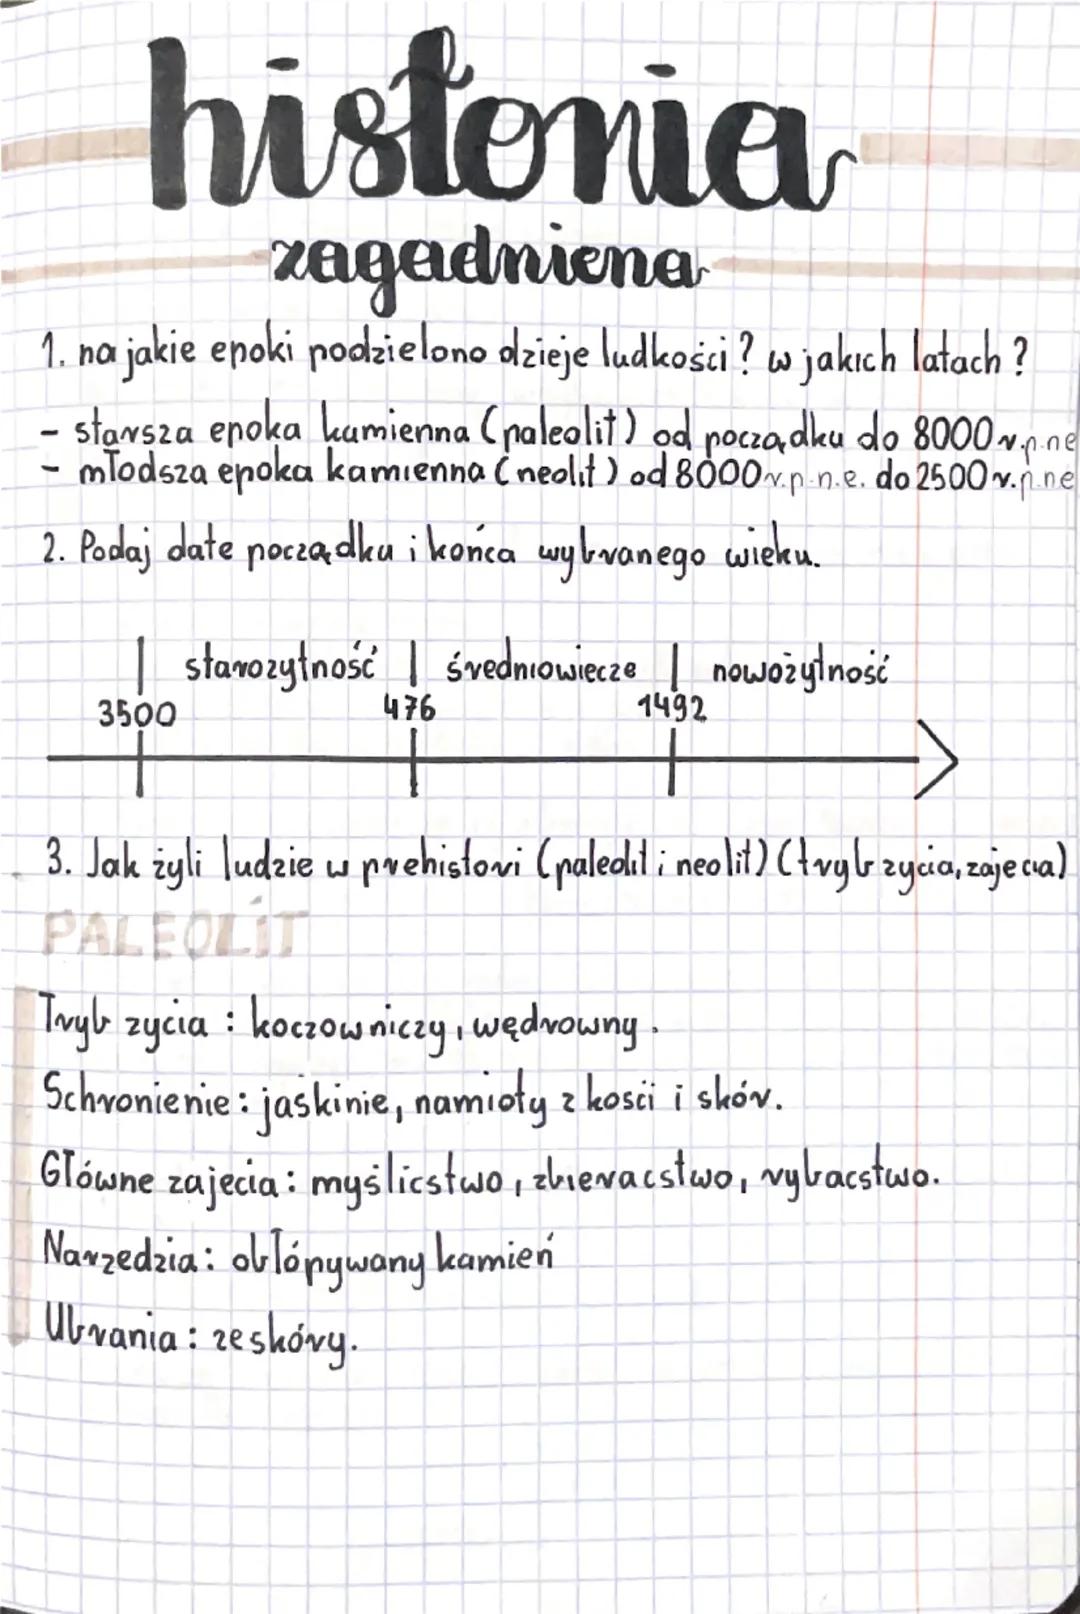 historia
zagadniena
1. na jakie epoki podzielono dzieje ludkości? w jakich latach?
- starsza epoka kamienna (paleolit) od początku do 8000 r.p.ne
- młodsza epoka kamienna (neolit) od 8000 r.p.n.e. do 2500 r.p.ne
2. Podaj date początku i końca wybranego wieku.
| starozytność | średniowiecze | nowożytność
3500 476 1492
3. Jak żyli ludzie w prehistori (paleolit i neolit) (tryb zycia, zajecia)
PALEOLIT
Tryb zycia : koczowniczy, wędrowny.
Schronienie : jaskinie, namioty z kosci i skór.
Główne zajecia : myślicstwo, zbieractwo, rybacstwo.
Narzedzia : obłópywany kamień
Ubrania : ze skóry.